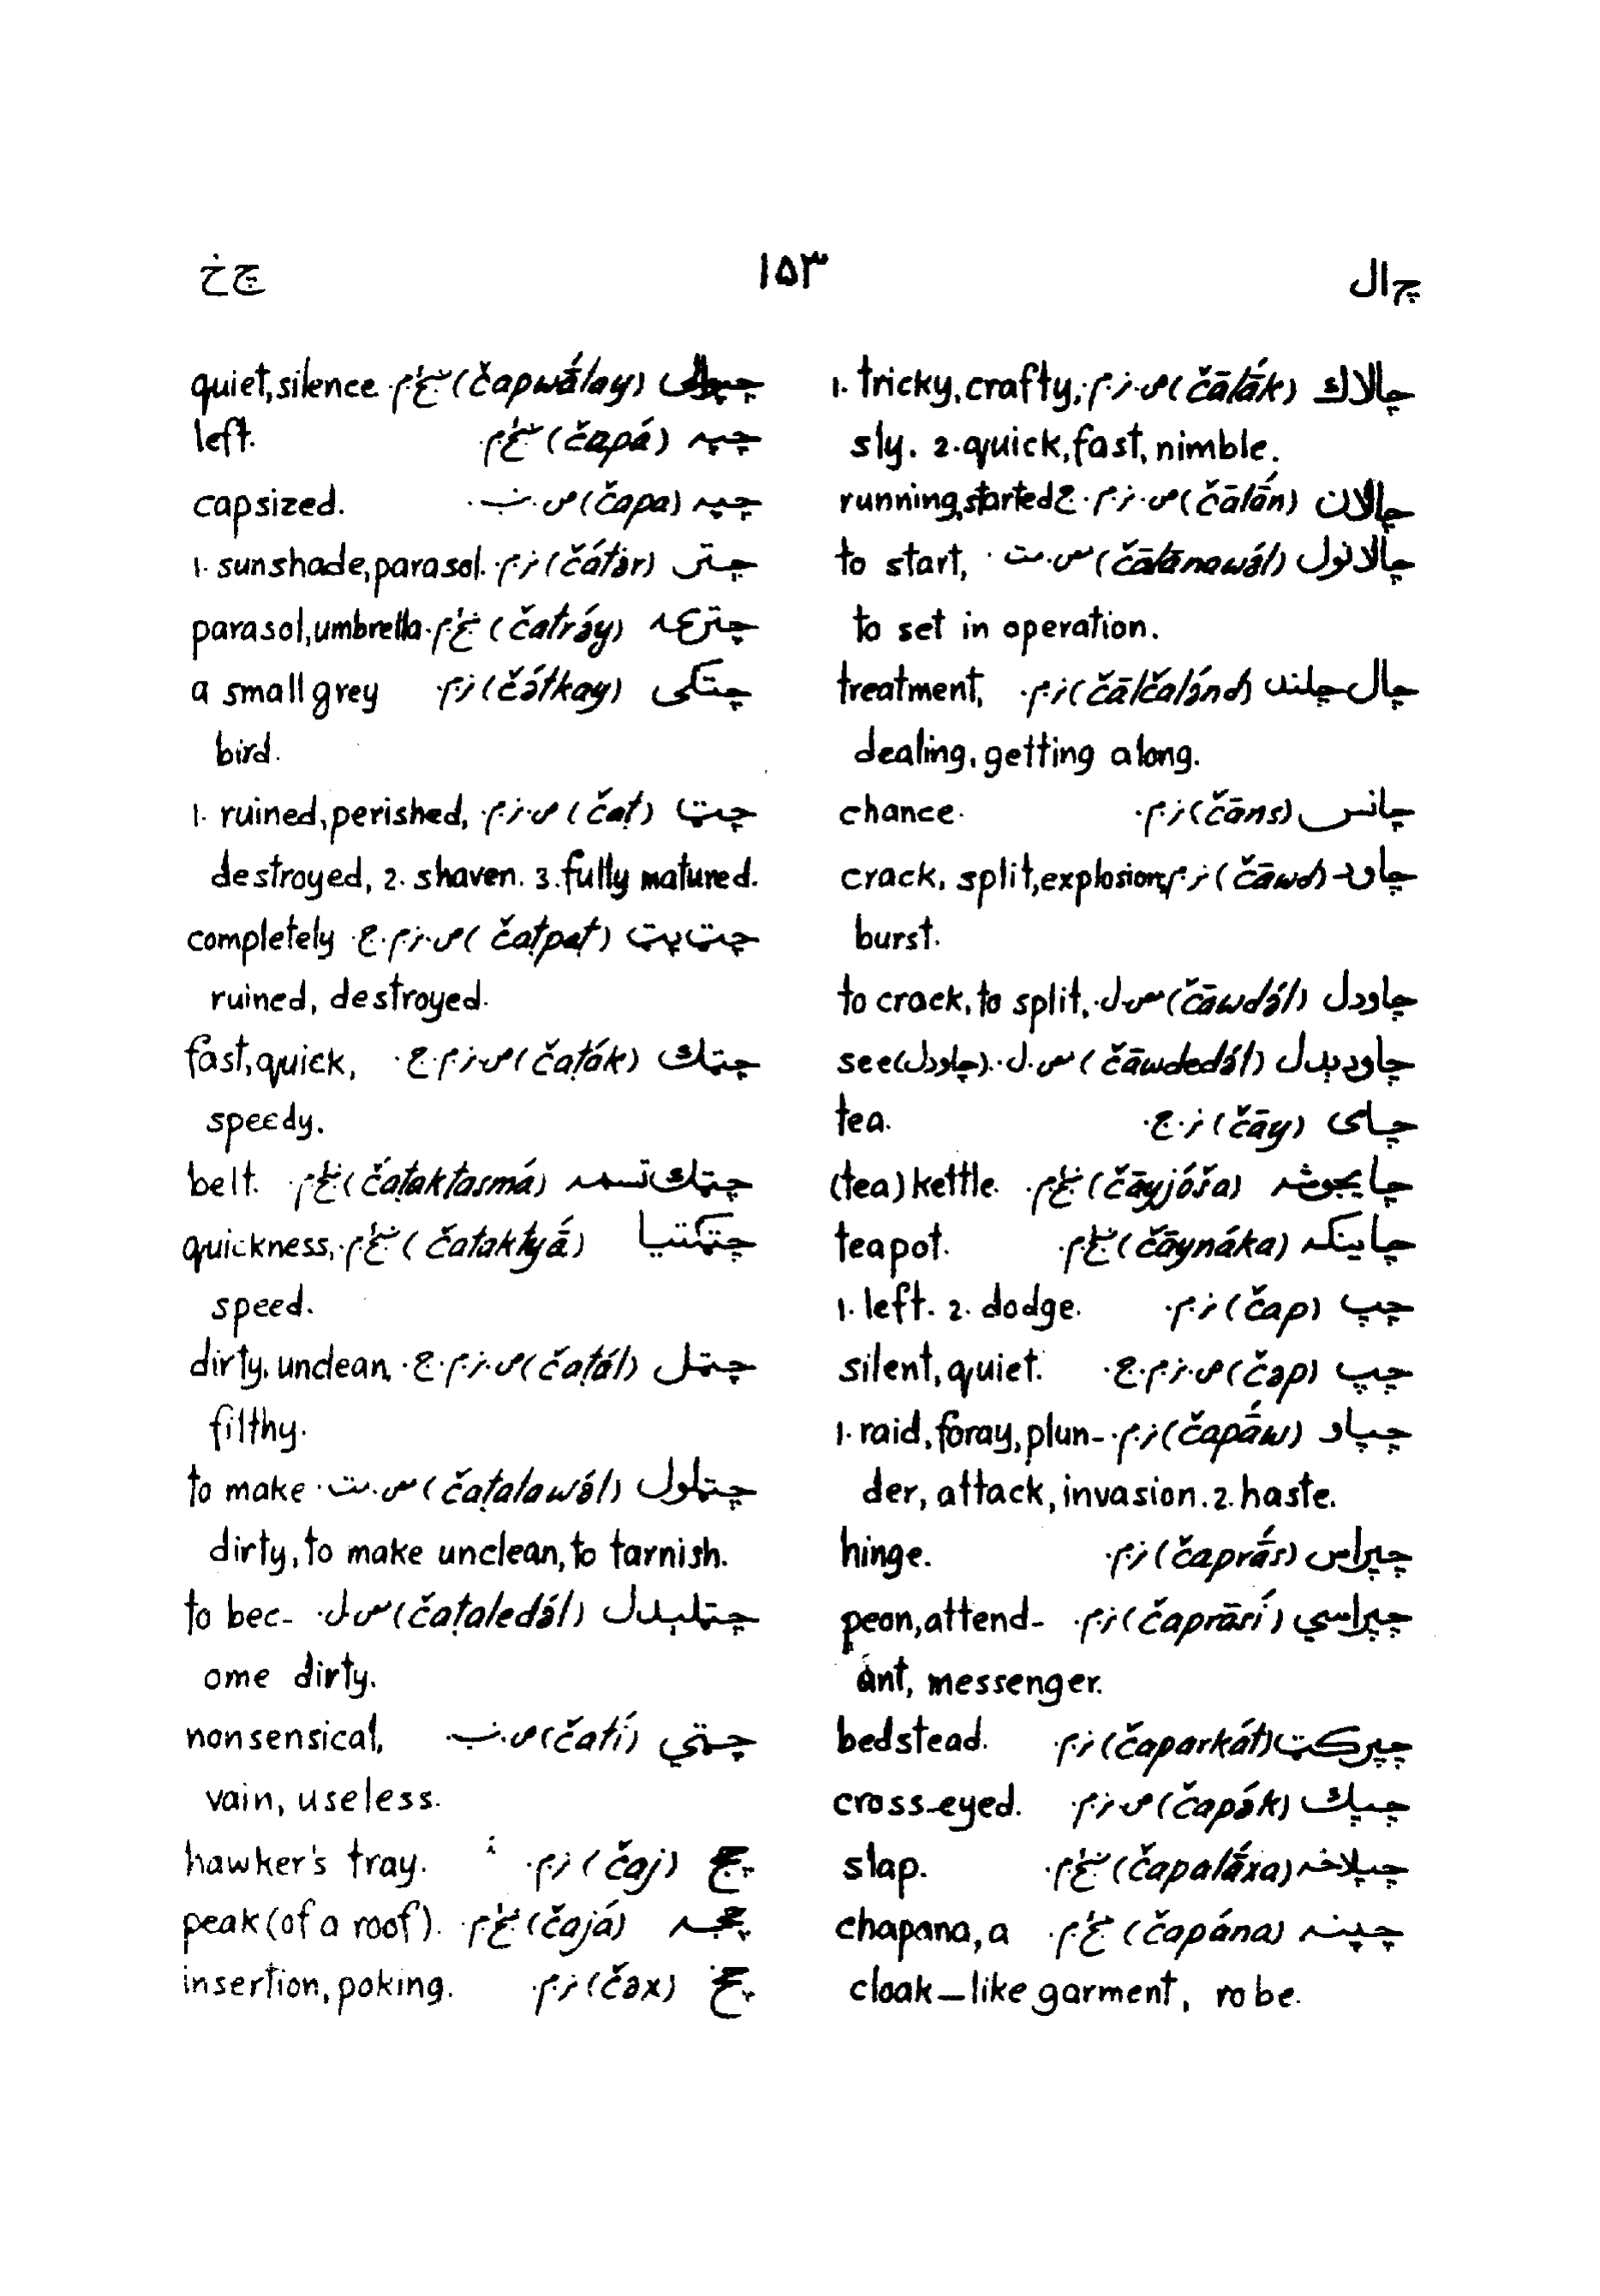 چ ال ۱۵۳ چ خ
چالاك (čālā́k) ص.ز.م. 1. tricky, crafty,
sly. 2. quick, fast, nimble.
چالان (čālā́n) ص.ز.م.ع running, started
چالانول (čālānawə́l) س.مت. to start,
to set in operation.
چال چلند (čālčalánd) ز.م. treatment,
dealing, getting along.
چانس (čāns) ز.م. chance.
چاود (čāwd) ز.م. crack, split, explosion,
burst.
چاودل (čāwdə́l) س.ل. to crack, to split,
چاودېدل (čāwdedə́l) س.ل. see (چاودل).
چای (čāy) ز.ج. tea.
چايجوشه (čāyjóša) ښځ.م. (tea) kettle.
چاينکه (čāynáka) ښځ.م. teapot.
چپ (čap) ز.م. 1. left. 2. dodge.
چپ (čəp) ص.ز.م.ع. silent, quiet.
چپاو (čapā́w) ز.م. 1. raid, foray, plun-
der, attack, invasion. 2. haste.
چپراس (čaprā́s) ز.م. hinge.
چپراسي (čaprāsí) ز.م. peon, attend-
ant, messenger.
چپرکټ (čaparkáṭ) ز.م. bedstead.
چپك (čapə́k) ص.ز.م. cross-eyed.
چپلاخه (čapalā́xa) ښځ.م. slap.
چپنه (čapána) ښځ.م. chapana, a
cloak-like garment, robe.
چپوالی (čapwā́lay) ښځ.م. quiet, silence
چپه (čapá) ښځ.م. left.
چپه (čapa) ص.ب. capsized.
چتر (čátər) ز.م. 1. sunshade, parasol.
چترۍ (čatrə́y) ښځ.م. parasol, umbrella.
چتکی (čə́tkay) ز.م. a small grey
bird.
چټ (čaṭ) ص.ز.م. 1. ruined, perished,
destroyed, 2. shaven. 3. fully matured.
چټ پټ (čaṭpaṭ) ص.ز.م.ع. completely
ruined, destroyed.
چټك (čaṭák) ص.ز.م.ع. fast, quick,
speedy.
چټك تسمه (čaṭaktasmá) ښځ.م. belt.
چټکتيا (čaṭaktyā́) ښځ.م. quickness,
speed.
چټل (čaṭál) ص.ز.م.ع. dirty, unclean,
filthy.
چټلول (čaṭalawə́l) س.مت. to make
dirty, to make unclean, to tarnish.
چټلېدل (čaṭaledə́l) س.ل. to bec-
ome dirty.
چټي (čaṭí) ص.ب. nonsensical,
vain, useless.
چج (čaj) ز.م. hawker's tray.
چجه (čajá) ښځ.م. peak (of a roof).
چخ (čəx) ز.م. insertion, poking.